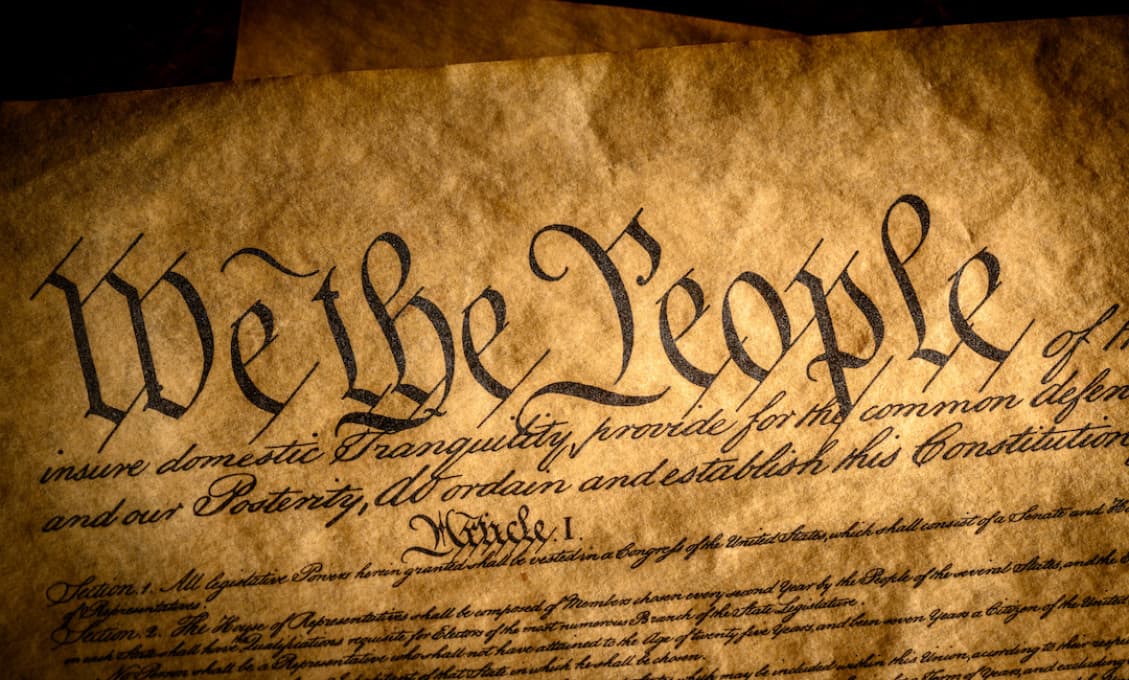 We the People of
insure domestic Tranquility, provide for the common defen
and our Posterity, do ordain and establish this Constitution
Article. I.
Section. 1. All legislative Powers herein granted shall be vested in a Congress of the United States, which shall consist of a Senate and
of Representatives.
Section. 2. The House of Representatives shall be composed of Members chosen every second Year by the People of the several States, and the
in each State shall have the Qualifications requisite for Electors of the most numerous Branch of the State Legislature.
No Person shall be a Representative who shall not have attained to the Age of twenty five Years, and been seven Years a Citizen of the United
of that State in which he shall be chosen.
which may be included within this Union, according to their
Term of Years, and excluding